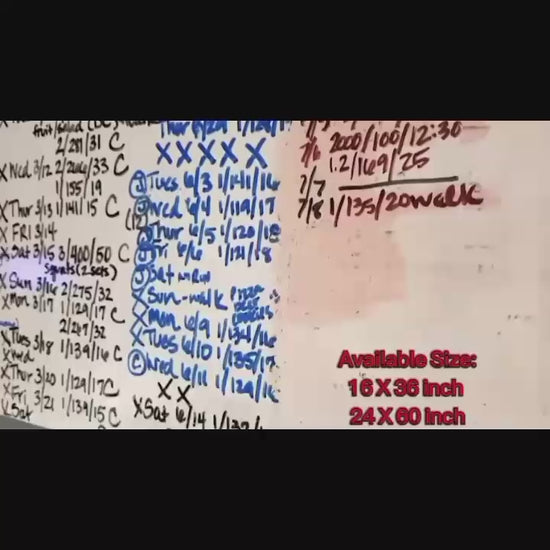 fruit/salad
2/281/31 C
X Wed 3/12 2/266/33 C
1/155/19
X Thur 3/13 1/141/15 C
X FRI 3/14
X Sat 3/15 3/400/50 C
squats (2 sets)
X Sun 3/16 2/275/32
X Mon 3/17 1/129/17 C
2/267/32
X Tues 3/18 1/139/16 C
X Wed
X Thur 3/20 1/129/17 C
X Fri 3/21 1/139/15 C
X Sat
X X X X X
Tues 6/3 1/141/16
Wed 6/4 1/119/17
Thur 6/5 1/120/18
Fri 6/6 1/121/18
Sat
Sun-walk
Mon 6/9 1/134/16
X Tues 6/10 1/135/17
C Wed 6/11 1/129/16
X X
X Sat 6/14 1/132/
7/6 2000/100/12:30
1.2/169/25
7/7
7/8 1/135/20 walk
Available Size:
16 X 36 inch
24 X 60 inch